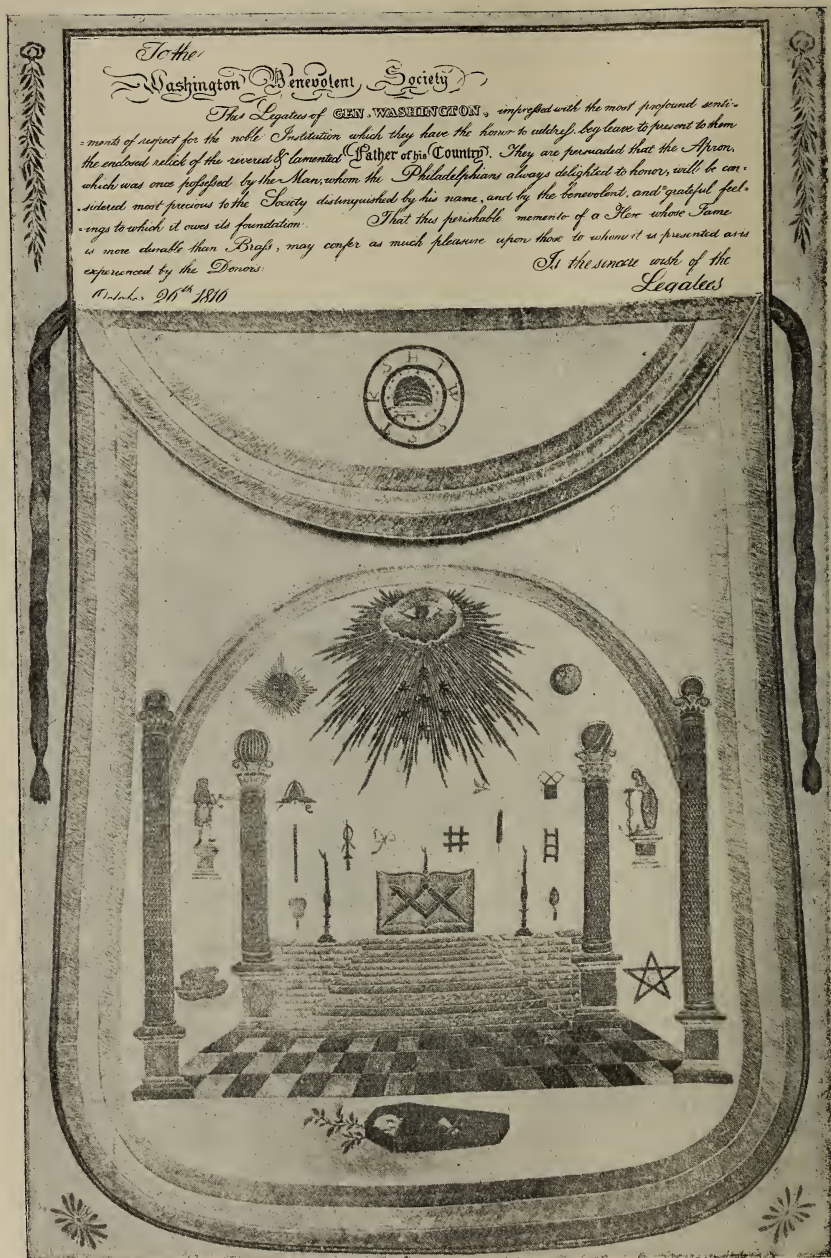 To the
Washington Benevolent Society
The Legatees of GEN. WASHINGTON, impressed with the most profound senti-
=ments of respect for the noble Institution which they have the honor to address, beg leave to present to them
the enclosed relick of the revered & lamented Father of his Country. They are persuaded that the Apron,
which was once possessed by the Man, whom the Philadelphians always delighted to honor, will be con-
-sidered most precious to the Society distinguished by his name, and by the benevolent, and grateful feel-
-ings to which it owes its foundation. That this perishable memento of a Hero whose Fame
is more durable than Brass, may confer as much pleasure upon those to whom it is presented as is
experienced by the Donors: Is the sincere wish of the
October 26th 1816 Legatees
H T W S S T K S